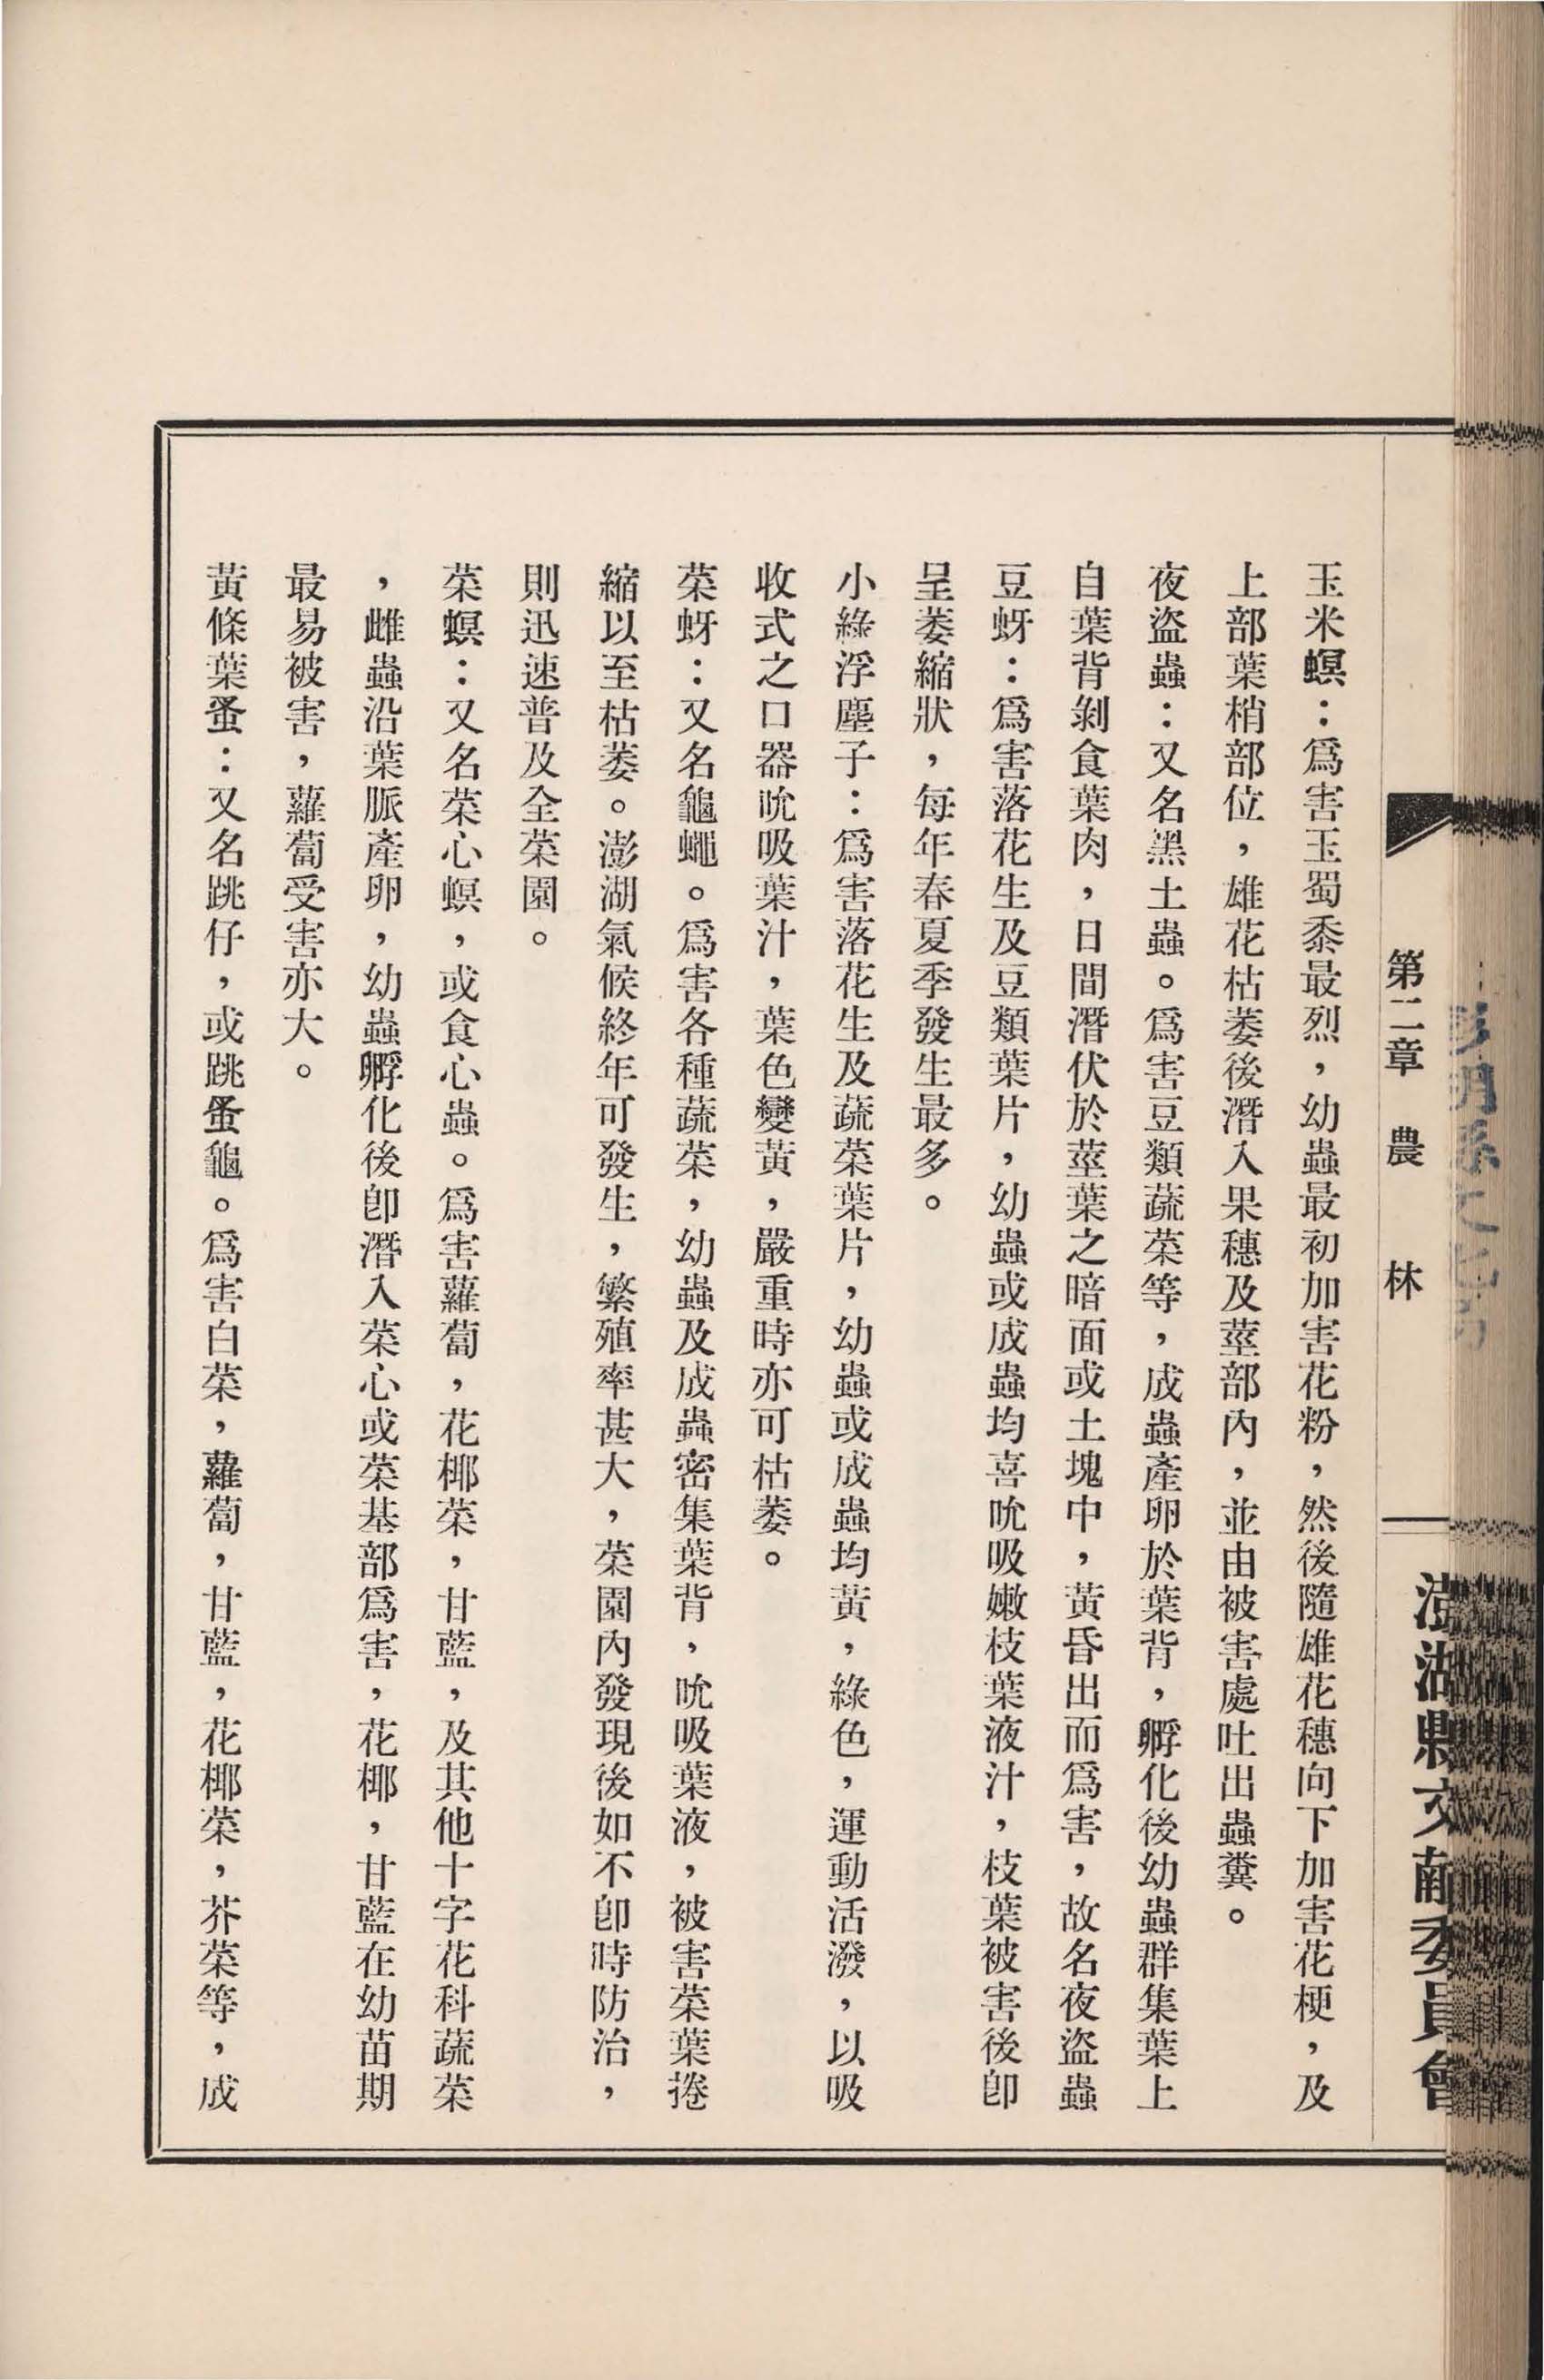 第二章　農　林
澎湖縣文獻委員會
玉米螟：爲害玉蜀黍最烈，幼蟲最初加害花粉，然後隨雄花穗向下加害花梗，及
上部葉梢部位，雄花枯萎後潛入果穗及莖部內，並由被害處吐出蟲糞。
夜盜蟲：又名黑土蟲。爲害豆類蔬菜等，成蟲產卵於葉背，孵化後幼蟲群集葉上
自葉背剝食葉肉，日間潛伏於莖葉之暗面或土塊中，黃昏出而爲害，故名夜盜蟲
豆蚜：爲害落花生及豆類葉片，幼蟲或成蟲均喜吮吸嫩枝葉液汁，枝葉被害後卽
呈萎縮狀，每年春夏季發生最多。
小綠浮塵子：爲害落花生及蔬菜葉片，幼蟲或成蟲均黃，綠色，運動活潑，以吸
收式之口器吮吸葉汁，葉色變黃，嚴重時亦可枯萎。
菜蚜：又名龜蠅。爲害各種蔬菜，幼蟲及成蟲密集葉背，吮吸葉液，被害菜葉捲
縮以至枯萎。澎湖氣候終年可發生，繁殖率甚大，菜園內發現後如不卽時防治，
則迅速普及全菜園。
菜螟：又名菜心螟，或食心蟲。爲害蘿蔔，花椰菜，甘藍，及其他十字花科蔬菜
，雌蟲沿葉脈產卵，幼蟲孵化後卽潛入菜心或菜基部爲害，花椰，甘藍在幼苗期
最易被害，蘿蔔受害亦大。
黃條葉蚤：又名跳仔，或跳蚤龜。爲害白菜，蘿蔔，甘藍，花椰菜，芥菜等，成